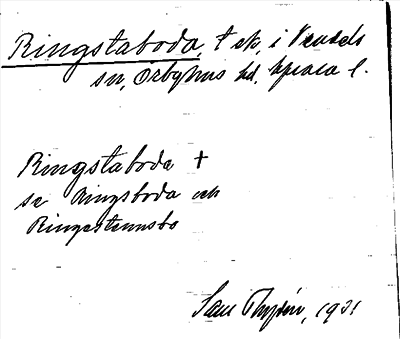 Ringstaboda, † ek, i Vendels
sn, Örbyhus hd, Uppsala l.
Ringstaboda †
se Ringsboda och
Ringestensbo
Sam Thysén, 1931